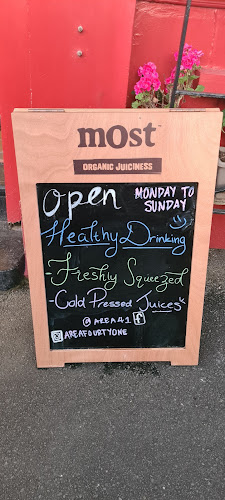 most™
ORGANIC JUICINESS
Open MONDAY TO
SUNDAY
Healthy Drinking
-Freshly Squeezed
-Cold Pressed Juices
@AREA41
AREAFOURTYONE